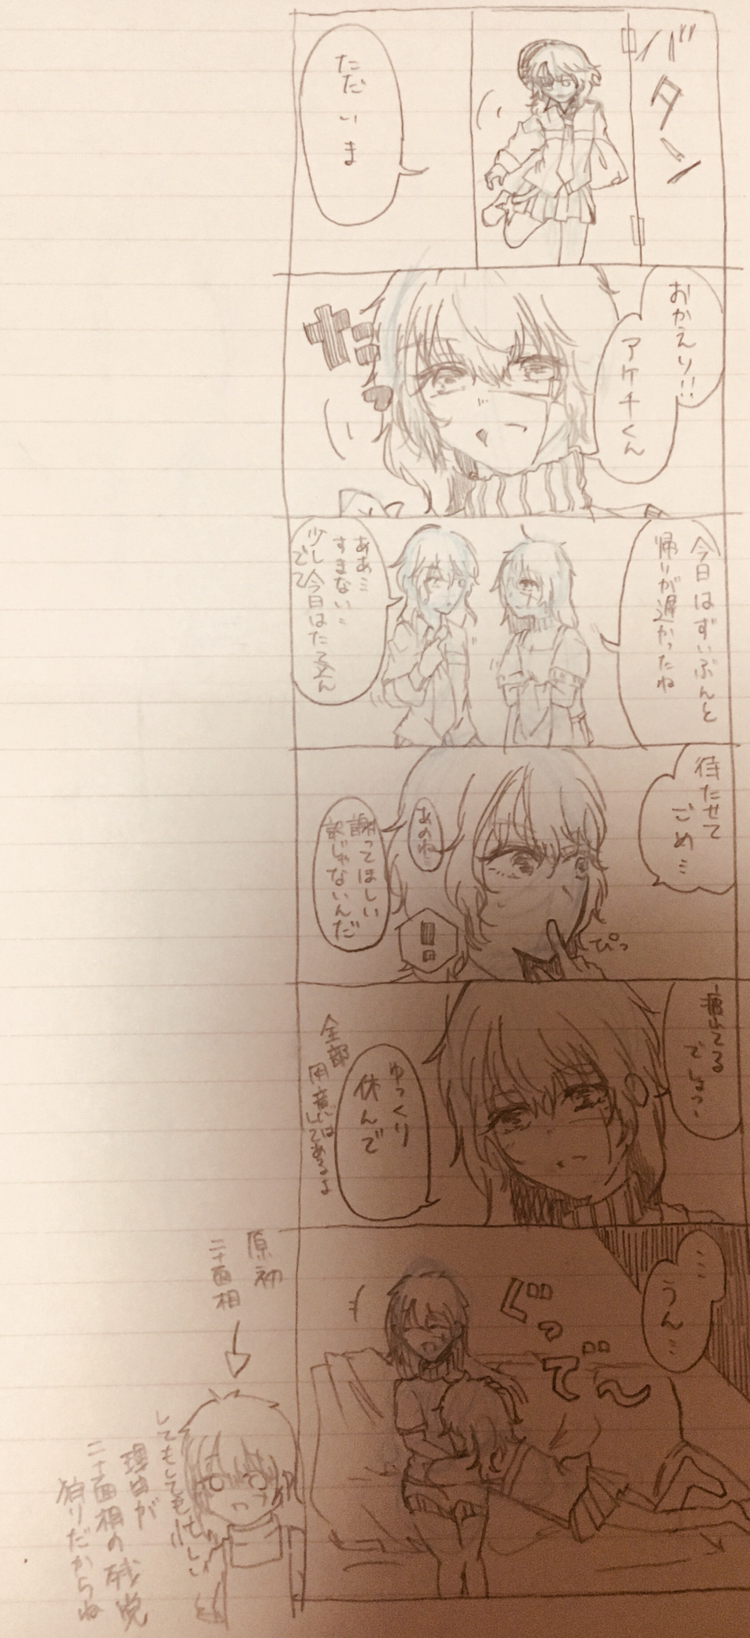 バタン
ただいま
おかえり!!
アケチくん
だきっ
今日はずいぶんと
帰りが遅かったね
ああ…
すまない…
少し今日はたてこん
でて
待たせて
ごめ…
あのね
謝ってほしい
訳じゃないんだ
ぴっ
!!
疲れてる
でしょう
ゆっくり
休んで
全部
用意は
してあるよ
……
うん…
ぐってぇ〜
原初
二十面相
しても忙しい
理由が
二十面相の残党
狩りだからね